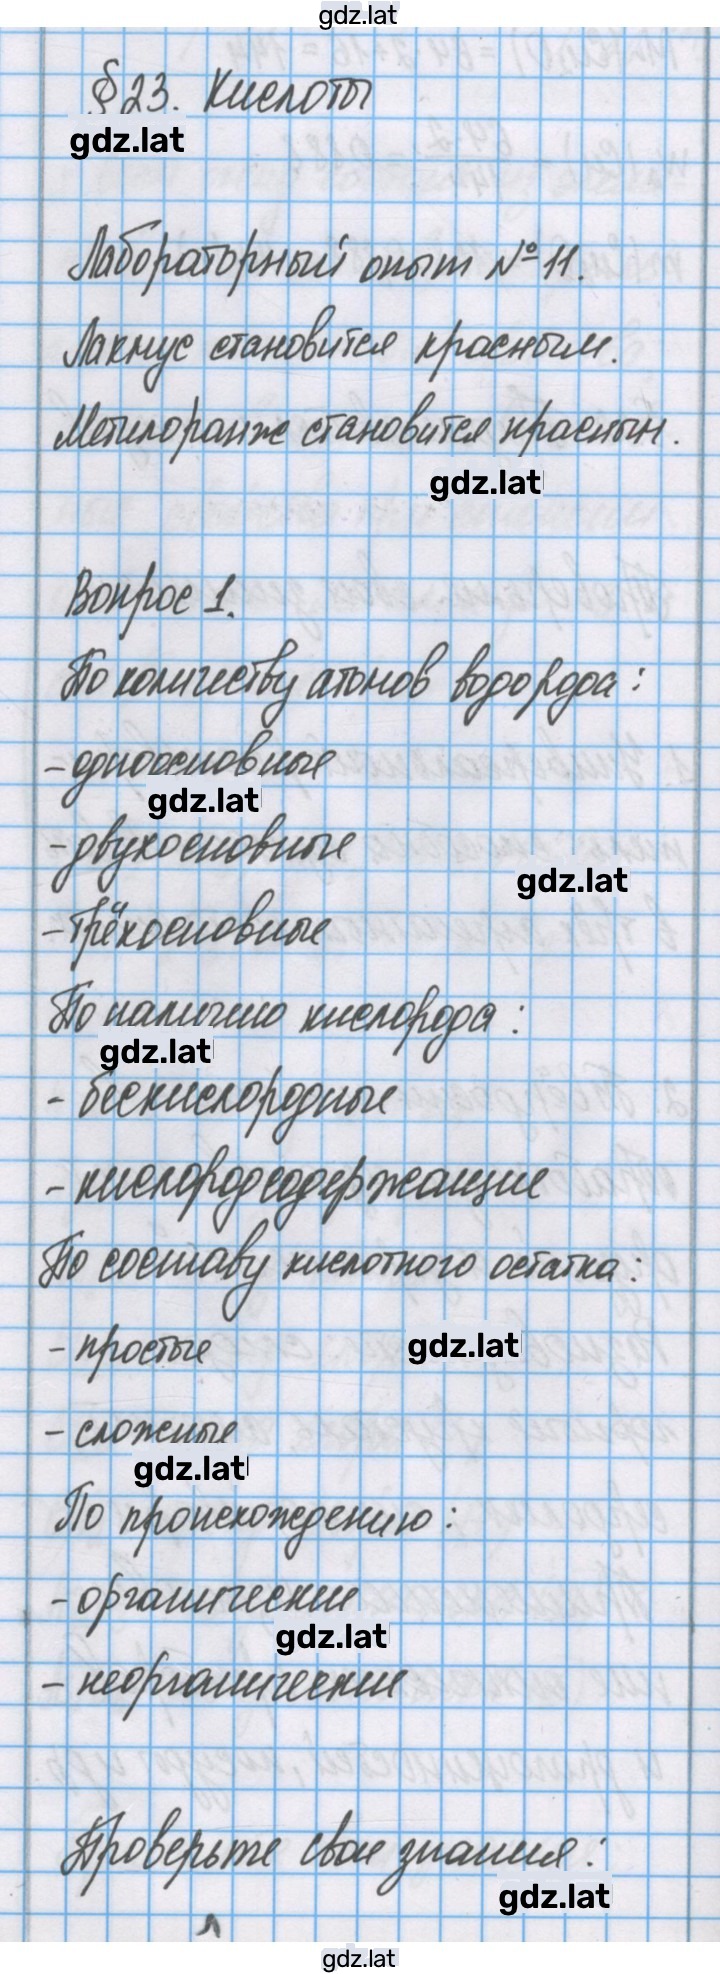 gdz.lat
§ 23. Кислоты
gdz.lat
Лабораторный опыт № 11.
Лакмус становится красным.
Метилоранж становится красным.
gdz.lat
Вопрос 1.
По количеству атомов водорода:
- одноосновные
gdz.lat
- двухосновные
gdz.lat
- трёхосновные
По наличию кислорода:
gdz.lat
- бескислородные
- кислородсодержащие
По составу кислотного остатка:
- простые
gdz.lat
- сложные
gdz.lat
По происхождению:
- органические
gdz.lat
- неорганические
Проверьте свои знания:
gdz.lat
gdz.lat